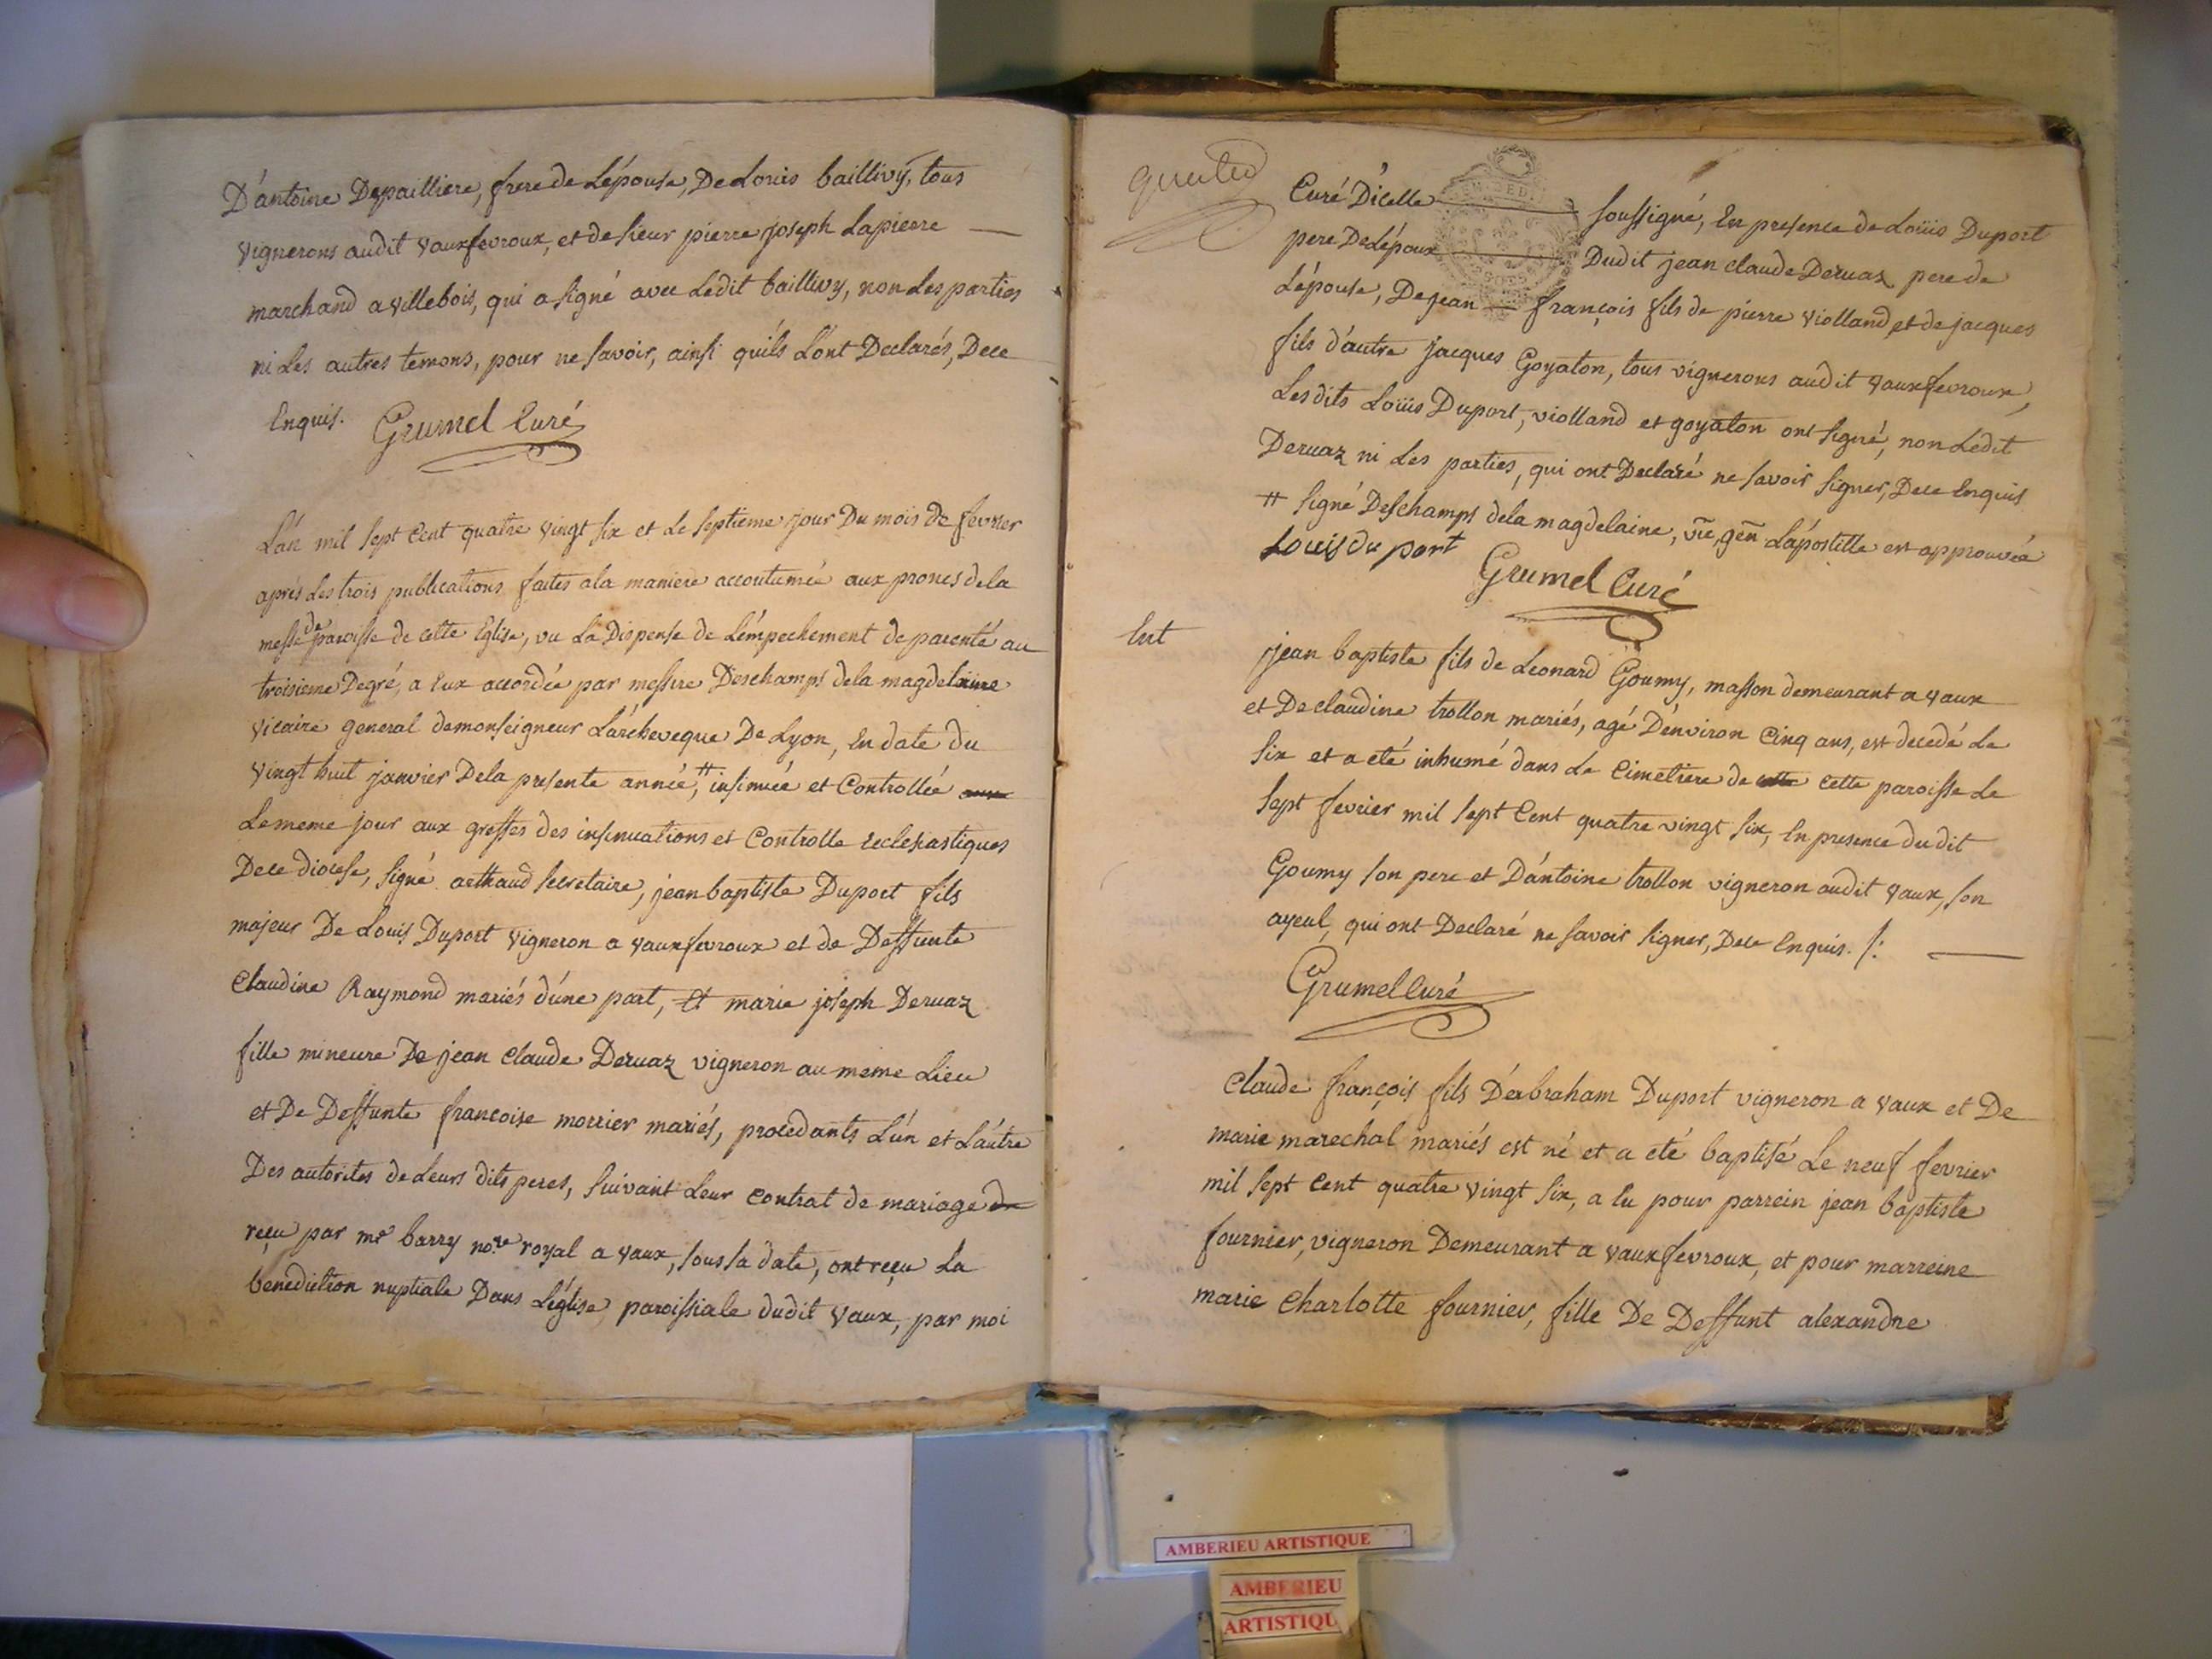 D'antoine Depailliere, frere de L'épouse, De Louis baillivy, tous
vignerons audit vauxfevroux, et de sieur pierre joseph Lapierre
marchand a villebois, qui a signé avec Ledit baillivy, non Les parties
ni Les autres temons, pour ne savoir, ainsi qu'ils L'ont Declarés, De ce
Enquis. Grumel Curé
L'an mil sept Cent quatre vingt six et Le septieme jour Du mois de fevrier
aprés Les trois publications faites a la maniere accoutumée aux prones de la
messe de paroisse de cette Eglise, vu La Dispense de L'émpechement de parenté au
troisieme Degré, a Eux accordée par messire Deschamps de la magdelaine
vicaire general de monseigneur L'archeveque De Lyon, En date du
vingt huit janvier De la presente année, # insinuée et Controllée
Le meme jour aux greffes des insinuations et Controlle Ecclesiastiques
De ce diocese, signé arthaud secretaire, jean baptiste Duport fils
majeur De Louis Duport vigneron a vauxfevroux et de Deffunte
Claudine Raymond mariés d'une part, Et marie joseph Dervaz
fille mineure De jean Claude Dervaz vigneron au meme Lieu
et De Deffunte francoise morrier mariés, procedants L'un et L'autre
Des autorites de Leurs dits peres, suivant Leur Contrat de mariage
reçu par me barry nore royal a vaux, sous sa date, ont reçu La
benediction nuptiale Dans L'église paroissiale dudit vaux, par moi
Curé D'icelle soussigné, En presence de Loüis Duport
pere De L'époux Dudit jean Claude Dervaz pere de
L'épouse, De jean françois fils de pierre violland et de jacques
fils d'autre jacques Goyaton, tous vignerons audit vauxfevroux,
Les dits Loüis Duport, violland et goyaton ont signé, non Ledit
Dervaz ni Les parties, qui ont Declaré ne savoir signer, De ce Enquis
# signé Deschamps de la magdelaine, vic, gen L'apostille est approuvée
Louis du port Grumel Curé
Ent
jean baptiste fils de Leonard Goumy, masson demeurant a vaux
et De claudine trollon mariés, agé D'environ Cinq ans, est decedé Le
six et a eté inhumé dans Le Cimetiere de cette paroisse Le
sept fevrier mil sept Cent quatre vingt six, En presence du dit
Goumy son pere et D'antoine trollon vigneron audit vaux, son
ayeul, qui ont Declaré ne savoir signer, De ce Enquis. /:
Grumel Curé
Claude françois fils D'abraham Duport vigneron a vaux et De
marie marechal mariés est né et a eté baptisé Le neuf fevrier
mil sept Cent quatre vingt six, a Eu pour parrein jean baptiste
fournier, vigneron Demeurant a vauxfevroux, et pour marreine
marie Charlotte fournier, fille De Deffunt alexandre
AMBERIEU ARTISTIQUE
AMBERIEU
ARTISTIQU